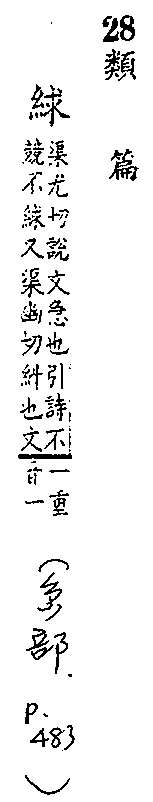 28 類篇
絿
渠尤切說文急也引詩不
競不絿又渠幽切糾也文
一重
音一
(糸部. p. 483)